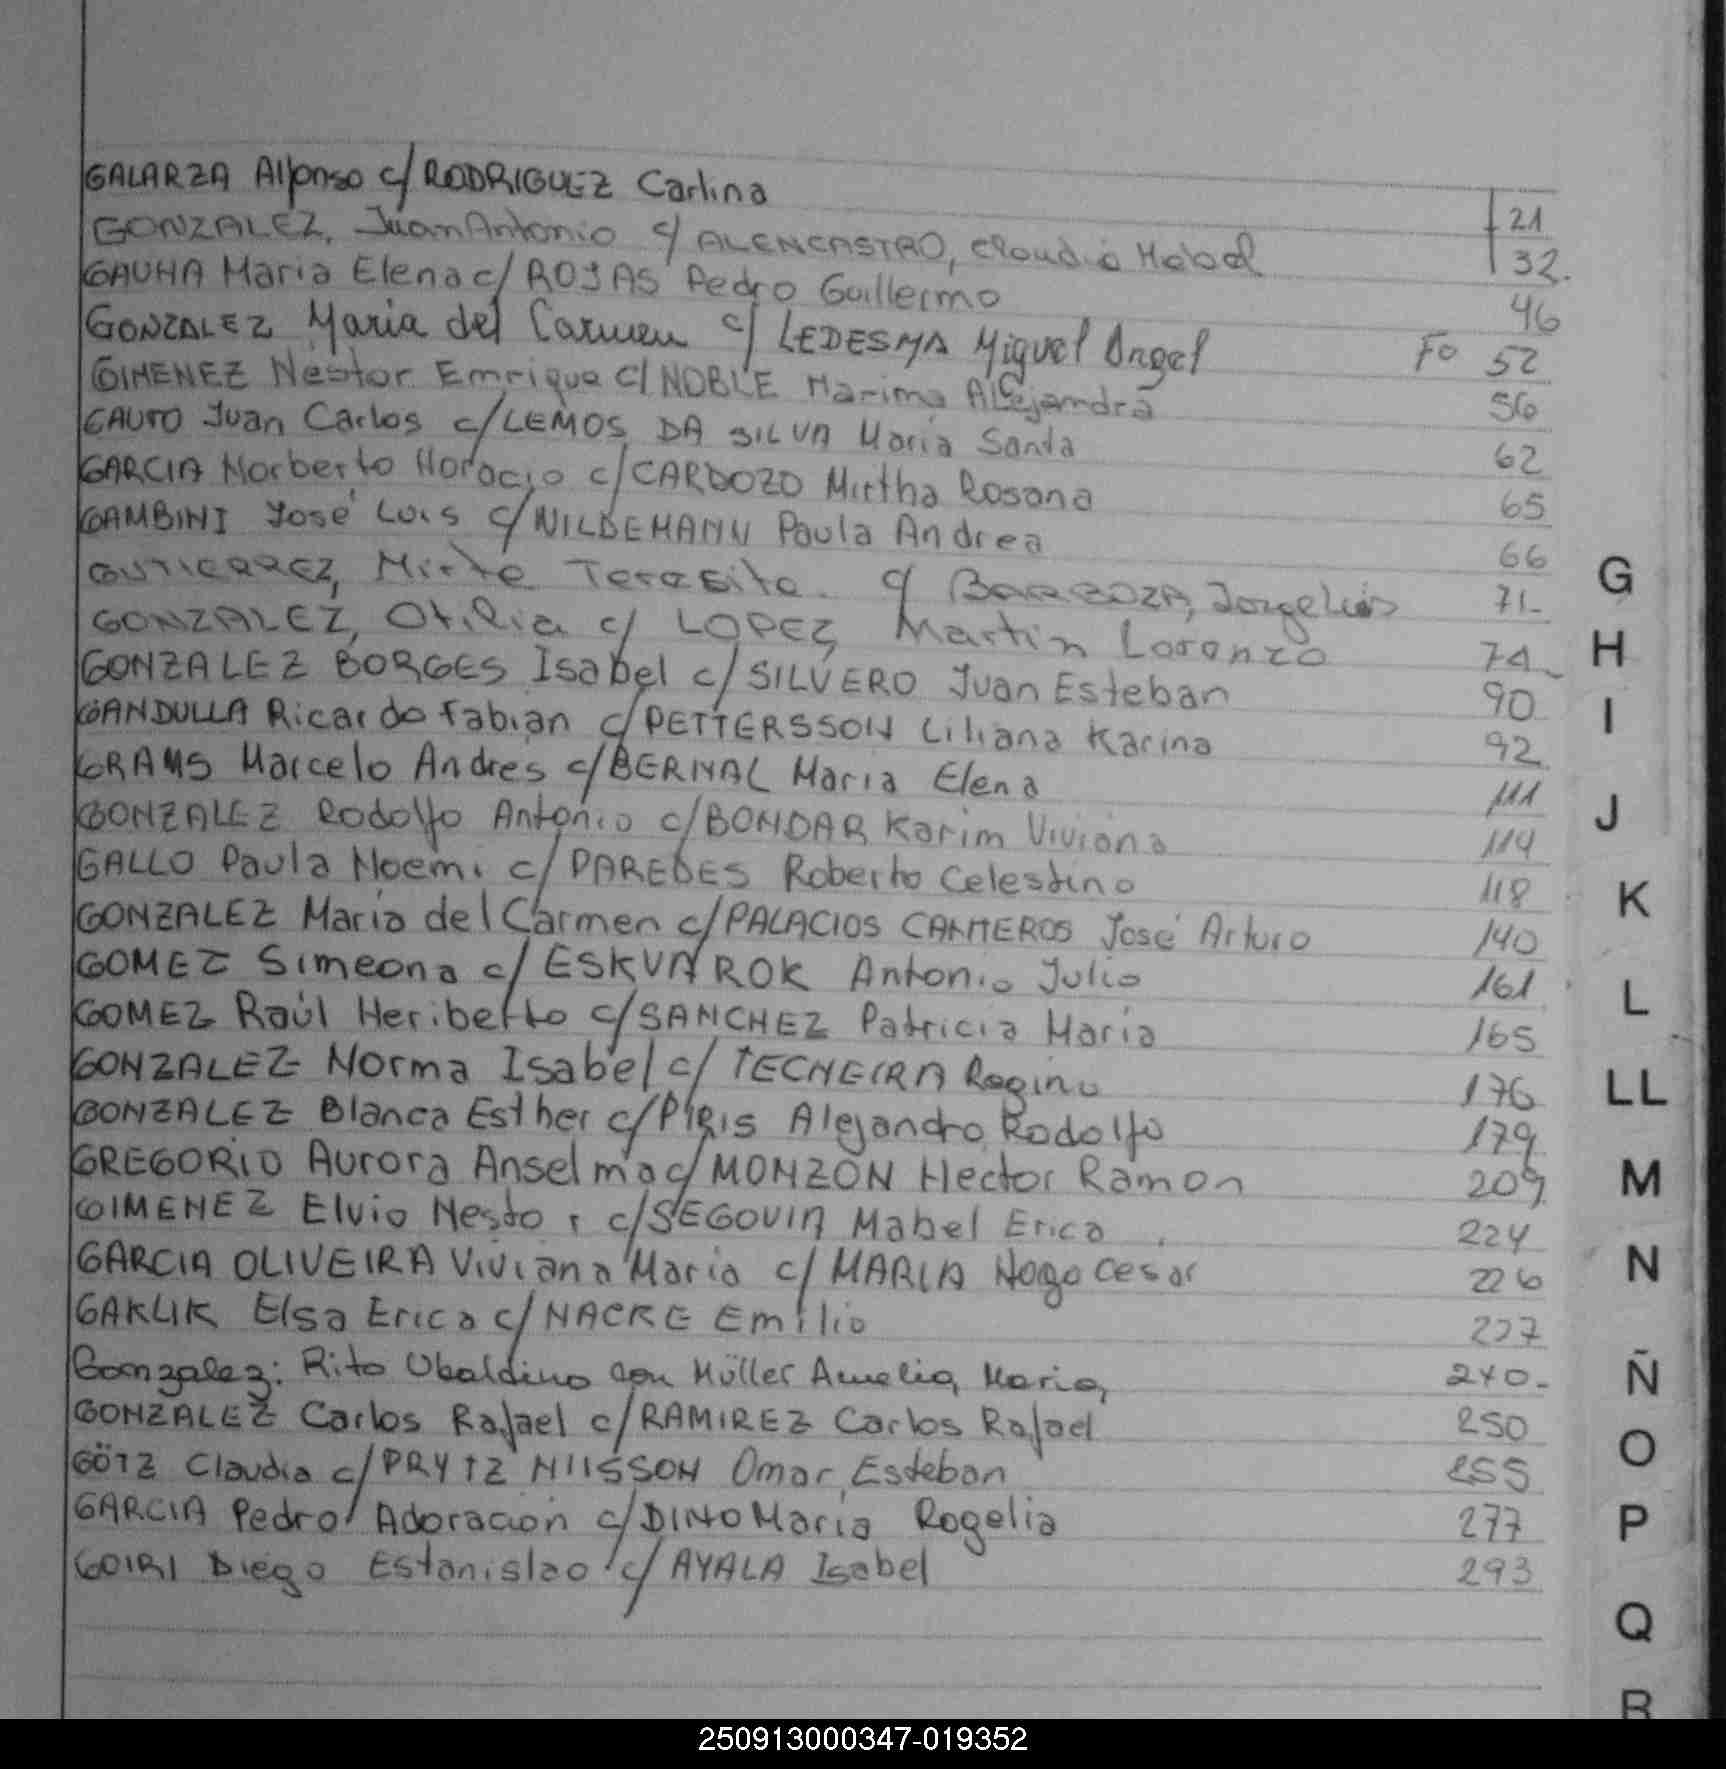 GALARZA Alfonso c/ RODRIGUEZ Carlina 21
GONZALEZ, Juan Antonio c/ ALENCASTRO, Claudia Mabel 32.
GAUHA Maria Elena c/ ROJAS Pedro Guillermo 46
GONZALEZ Maria del Carmen c/ LEDESMA Miguel Angel Fo 52
GIMENEZ Nestor Enrique c/ NOBLE Marina Alejandra 56
GAUTO Juan Carlos c/ LEMOS DA SILVA Maria Santa 62
GARCIA Norberto Horacio c/ CARDOZO Mirtha Rosana 65
GAMBINI José Luis c/ WILDEMANN Paula Andrea 66
GUTIERREZ, Mirta Teresita c/ BARBOZA, Jorge Luis 71-
GONZALEZ, Otilia c/ LOPEZ, Martin Lorenzo 74
GONZALEZ BORGES Isabel c/ SILVERO Juan Esteban 90
GANDULLA Ricardo Fabian c/ PETTERSSON Liliana Karina 92
GRAMS Marcelo Andres c/ BERNAL Maria Elena 111
GONZALEZ Rodolfo Antonio c/ BONDAR Karim Viviana 114
GALLO Paula Noemi c/ PAREDES Roberto Celestino 118
GONZALEZ Maria del Carmen c/ PALACIOS CANTEROS José Arturo 140
GOMEZ Simeona c/ ESKVAROK Antonio Julio 161
GOMEZ Raúl Heriberto c/ SANCHEZ Patricia Maria 165
GONZALEZ Norma Isabel c/ TECHEIRA Regino 176
GONZALEZ Blanca Esther c/ PIRIS Alejandro Rodolfo 179
GREGORIO Aurora Anselma c/ MONZON Hector Ramon 209
GIMENEZ Elvio Nestor c/ SEGOVIA Mabel Erica 224
GARCIA OLIVEIRA Viviana Maria c/ MARLA Hogo Cesar 226
GAKLIK Elsa Erica c/ NACKE Emilio 227
Gonzalez: Rito Ubaldino con Müller Amelia, Maria, 240-
GONZALEZ Carlos Rafael c/ RAMIREZ Carlos Rafael 250
GÖTZ Claudia c/ PRYTZ NILSSON Omar Esteban 255
GARCIA Pedro Adoracion c/ DINO Maria Rogelia 277
GOIRI Diego Estanislao c/ AYALA Isabel 293
G
H
I
J
K
L
LL
M
N
Ñ
O
P
Q
R
250913000347-019352